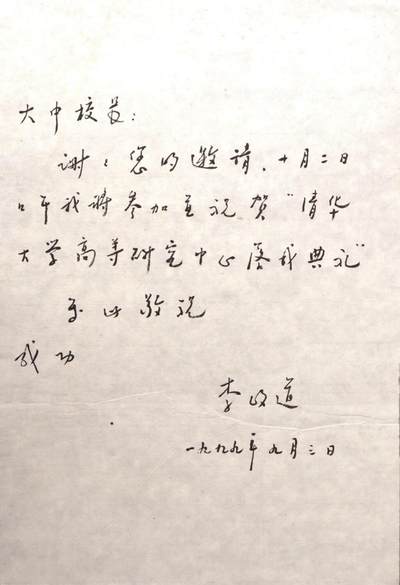 大中校长：
谢谢您的邀请，十月二日
上午我将参加并祝贺“清华
大学高等研究中心落成典礼”
专此敬祝
成功
李政道
一九九九年九月三日